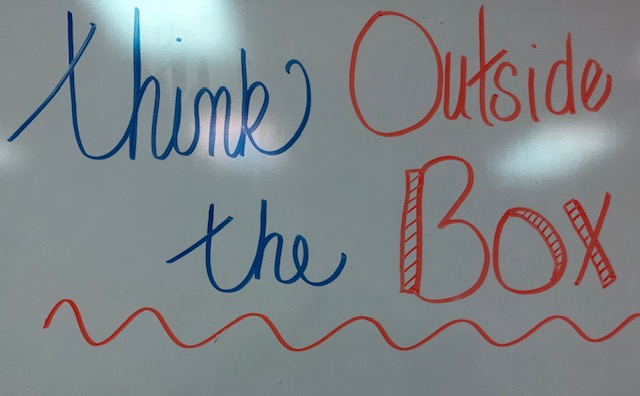 think Outside
the Box